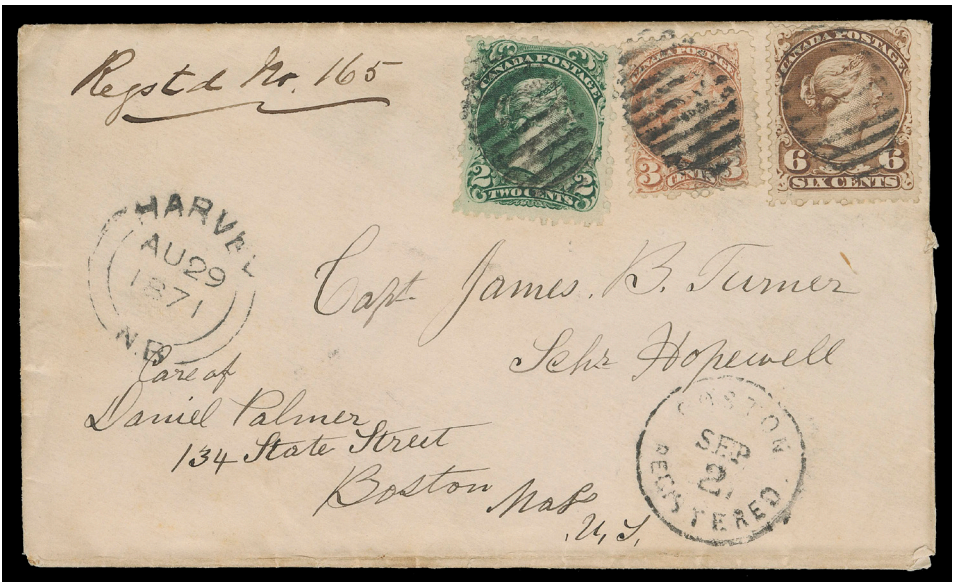 Regst'd No. 165
CANADA POSTAGE
2 2
TWO CENTS
CANADA POSTAGE
3 3
CENTS
CANADA POSTAGE
6 6
SIX CENTS
HARVEY
AU 29
1871
N.B
Capt. James. B. Turner
Schr Hopewell
Care of
Daniel Palmer
134 State Street
Boston Mass
U,S,
BOSTON
SEP
2
REGISTERED.